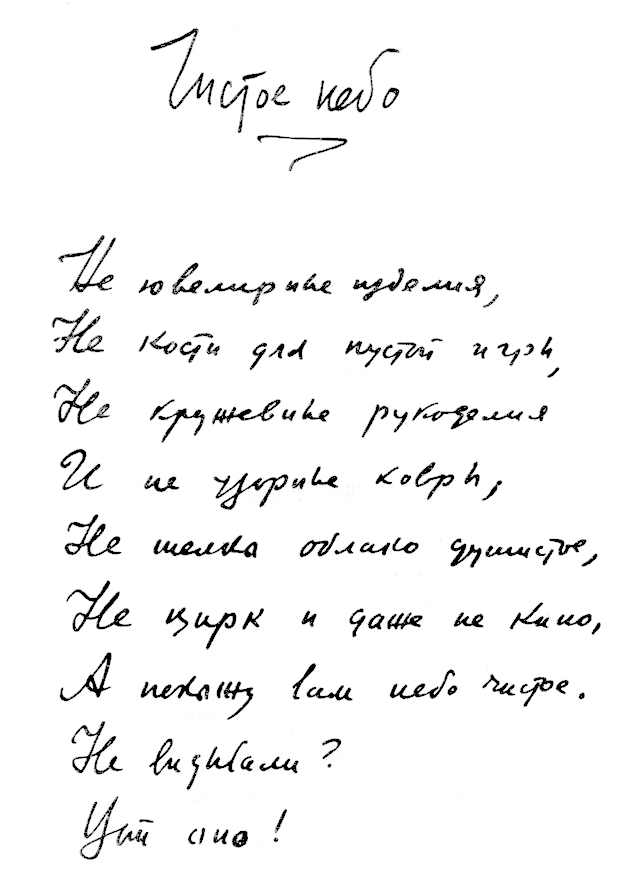 Чистое небо
Не ювелирные изделия,
Не кости для пустой игры,
Не кружевные рукоделия
И не узорные ковры,
Не шелка облако душистое,
Не цирк и даже не кино,
А покажу вам небо чистое.
Не видывали?
Вот оно!